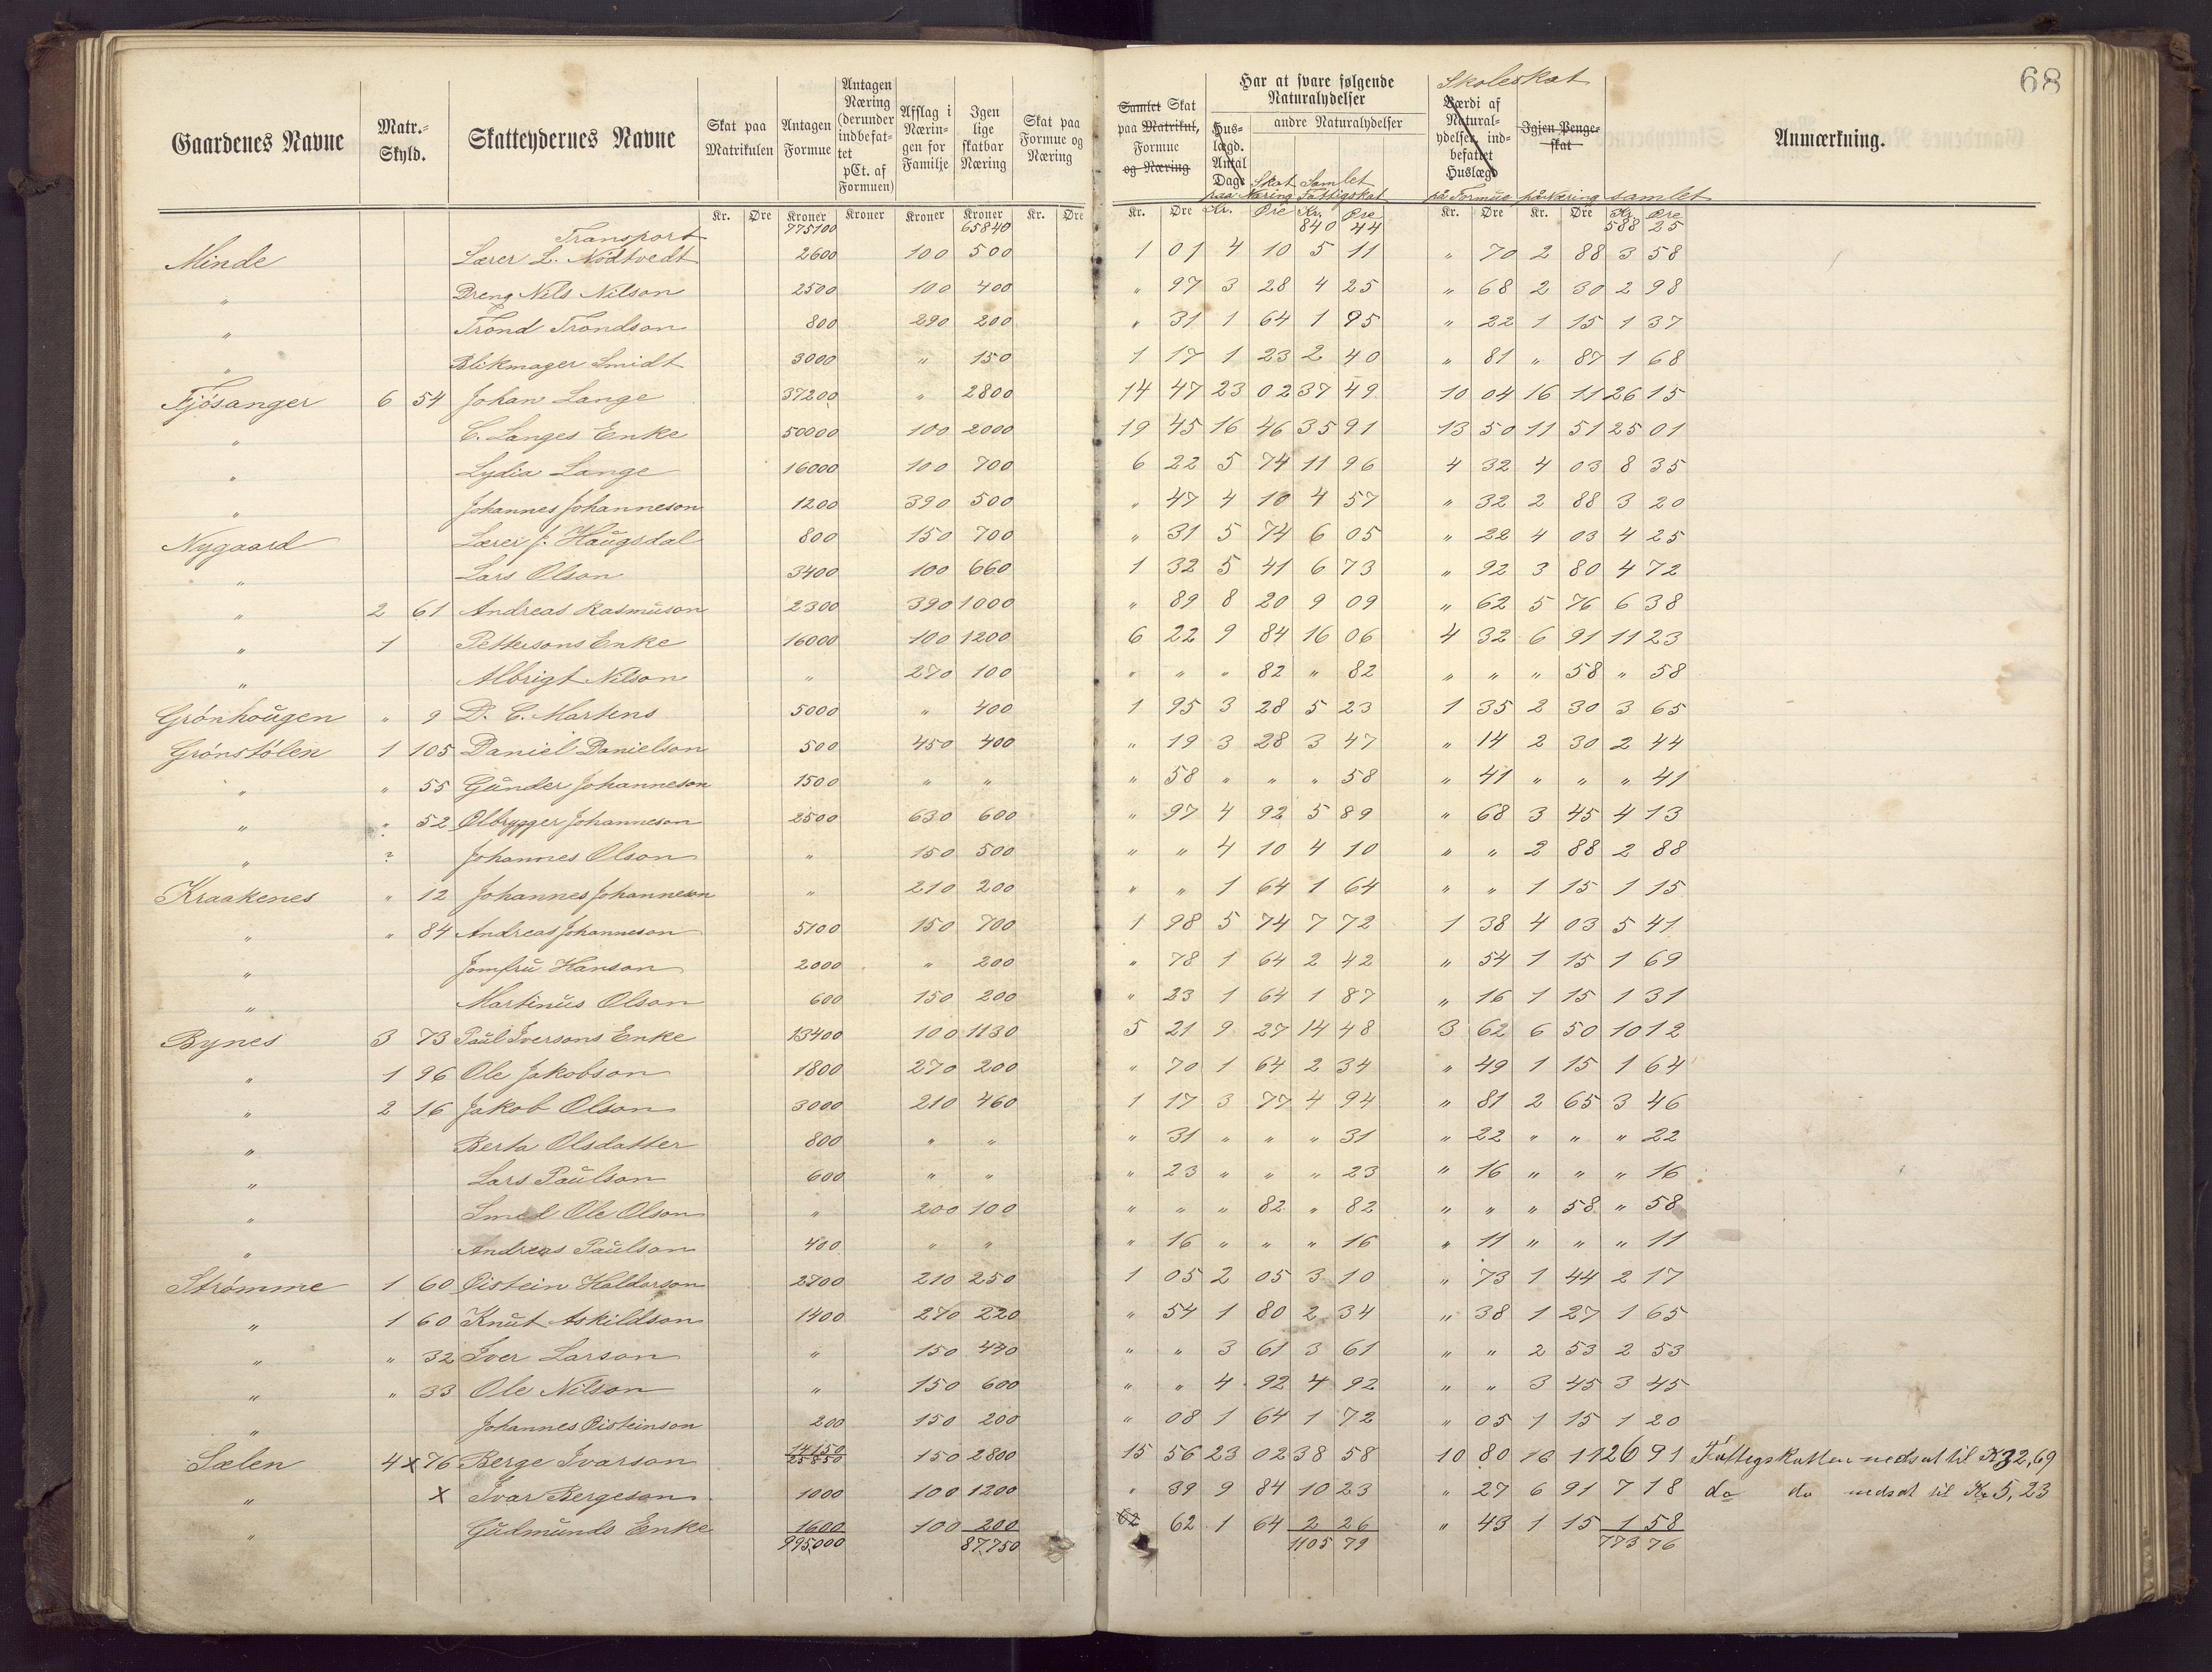 68
Gaardenes Navne | Matr.-Skyld. | Skatteydernes Navne | Skat paa Matrikulen | Antagen Formue | Antagen Næring (derunder indbefattet pCt. af Formuen) | Afslag i Næringen for Familje | Igen lige skatbar Næring | Skat paa Formue og Næring | Samlet Skat paa Matrikul, Formue og Næring | Har at svare følgende Naturalydelser | Huslægd. Antal Dage | andre Naturalydelser | Skat paa Næring | Samlet Fattigskat | Skoleskat | Værdi af Naturalydelser, indbefattet Huslægd | på Formue | Igjen Pengeskat | på Næring | samlet | Anmærkning.
Kr. Øre Kroner Kroner Kroner Kroner Kr. Øre Kr. Øre Kr. Øre Kr. Øre Kr. Øre Kr. Øre Kr. Øre
Transport 775100 65840 840 44 588 25
Minde Lærer L. Nödtvedt 2600 100 500 1 01 4 10 5 11 " 70 2 88 3 58
" Dreng Nils Nilson 2500 100 400 " 97 3 28 4 25 " 68 2 30 2 98
" Trond Trondson 800 290 200 " 31 1 64 1 95 " 22 1 15 1 37
" Blikmager Smidt 3000 " 150 1 17 1 23 2 40 " 81 " 87 1 68
Fjösanger 6 54 Johan Lange 37200 " 2800 14 47 23 02 37 49 10 04 16 11 26 15
" C. Langes Enke 50000 100 2000 19 45 16 46 35 91 13 50 11 51 25 01
" Lydia Lange 16000 100 700 6 22 5 74 11 96 4 32 4 03 8 35
" Johannes Johanneson 1200 390 500 " 47 4 10 4 57 " 32 2 88 3 20
Nygaard Lærer J. Haŭgsdal 800 150 700 " 31 5 74 6 05 " 22 4 03 4 25
" Lars Olson 3400 100 660 1 32 5 41 6 73 " 92 3 80 4 72
" 2 61 Andreas Rasmŭson 2300 390 1000 " 89 8 20 9 09 " 62 5 76 6 38
" 1 Pettersons Enke 16000 100 1200 6 22 9 84 16 06 4 32 6 91 11 23
" Albrigt Nilson " 270 100 " " " 82 " 82 " " " 58 " 58
Grönhoŭgen " 9 D. C. Martens 5000 " 400 1 95 3 28 5 23 1 35 2 30 3 65
Grönstölen 1 105 Daniel Danielson 500 450 400 " 19 3 28 3 47 " 14 2 30 2 44
" " 55 Gŭnder Johanneson 1500 " " " 58 " " " 58 " 41 " " " 41
" " 52 Olbrygger Johanneson 2500 630 600 " 97 4 92 5 89 " 68 3 45 4 13
" ? Johannes Olson " 150 500 " " 4 10 4 10 " " 2 88 2 88
Kraakenes " 12 Johannes Johanneson " 210 200 " " 1 64 1 64 " " 1 15 1 15
" " 84 Andreas Johanneson 5100 150 700 1 98 5 74 7 72 1 38 4 03 5 41
" Jomfrŭ Hanson 2000 " 200 " 78 1 64 2 42 " 54 1 15 1 69
" Martinŭs Olson 600 150 200 " 23 1 64 1 87 " 16 1 15 1 31
Bynes 3 73 Paŭl Iversons Enke 13400 100 1130 5 21 9 27 14 48 3 62 6 50 10 12
" 1 96 Ole Jakobson 1800 270 200 " 70 1 64 2 34 " 49 1 15 1 64
" 2 16 Jakob Olson 3000 210 460 1 17 3 77 4 94 " 81 2 65 3 46
" Berta Olsdatter 800 " " " 31 " " " 31 " 22 " " " 22
" Lars Paŭlson 600 " " " 23 " " " 23 " 16 " " " 16
" Smed Ole Olson " 200 100 " " " 82 " 82 " " " 58 " 58
" Andreas Paŭlson 400 " " " 16 " " " 16 " 11 " " " 11
Strömme 1 60 Öistein Haldorson 2700 210 250 1 05 2 05 3 10 " 73 1 44 2 17
" 1 60 Knŭt Askildson 1400 270 220 " 54 1 80 2 34 " 38 1 27 1 65
" " 32 Iver Larson " 150 440 " " 3 61 3 61 " " 2 53 2 53
" " 33 Ole Nilson " 150 600 " " 4 92 4 92 " " 3 45 3 45
" Johannes Öisteinson 200 150 200 " 08 1 64 1 72 " 05 1 15 1 20
Sælen 4 x 76 Berge Ivarson 14150 25850 150 2800 15 56 23 02 38 58 10 80 16 11 26 91 Fattigskatten nedsat til K 32,69
" x Ivar Bergeson 1000 100 1200 " 39 9 84 10 23 " 27 6 91 7 18 do do nedsat til Kr 5,23
" Gŭdmŭnds Enke 1600 100 200 62 62 1 64 2 26 " 43 1 15 1 58
995000 87750 1105 79 773 76